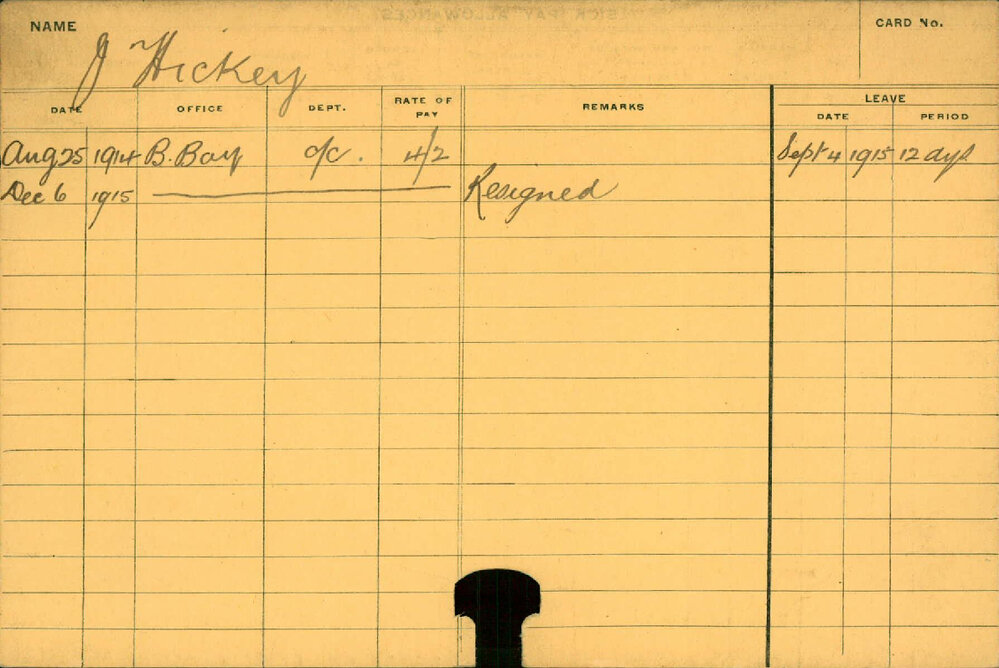 NAME
J Hickey
CARD No.
DATE OFFICE DEPT. RATE OF PAY REMARKS LEAVE
DATE PERIOD
Aug 25 1914 B. Bay o/c. 4/2 Sept 4 1915 12 dys
Dec 6 1915 Resigned